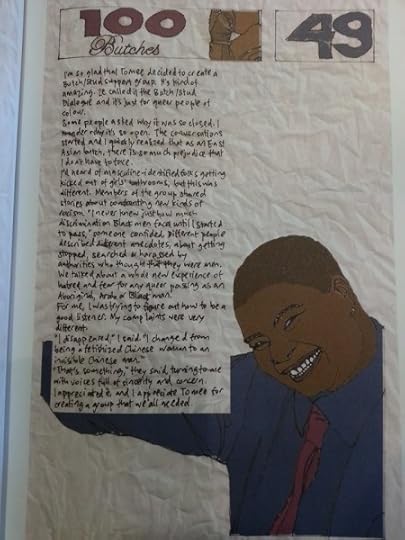 100
Butches
49
I'm so glad that Tomee decided to create a
Butch/Stud support group. It's kind of
amazing. Ze called it the Butch/Stud
Dialogue and it's just for queer people of
colour.
Some people asked why it was so closed. I
wonder why it's so open. The conversations
started and I quickly realized that as an East
Asian butch, there is so much prejudice that
I don't have to face.
I'd heard of masculine-identified folks getting
kicked out of girls' bathrooms, but this was
different. Members of the group shared
stories about confronting new kinds of
racism. "I never knew just how much
discrimination Black men face until I started
to pass," someone confided. Different people
described different anecdotes, about getting
stopped, searched or harassed by
authorities who thought that they were men.
We talked about a whole new experience of
hatred and fear for any queer passing as an
Aboriginal, Arab or Black man.
For me, I was trying to figure out how to be a
good listener. My complaints were very
different.
"I disappeared," I said. "I changed from
being a fetishized Chinese woman to an
invisible Chinese man."
"That's something," they said, turning to me
with voices full of sincerity and concern.
I appreciated it and I appreciate Tomee for
creating a group that we all needed.